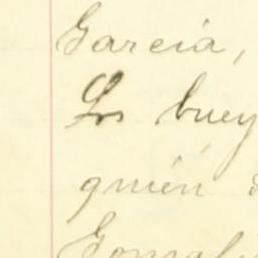 García,
Los buey
quién
Gonzal